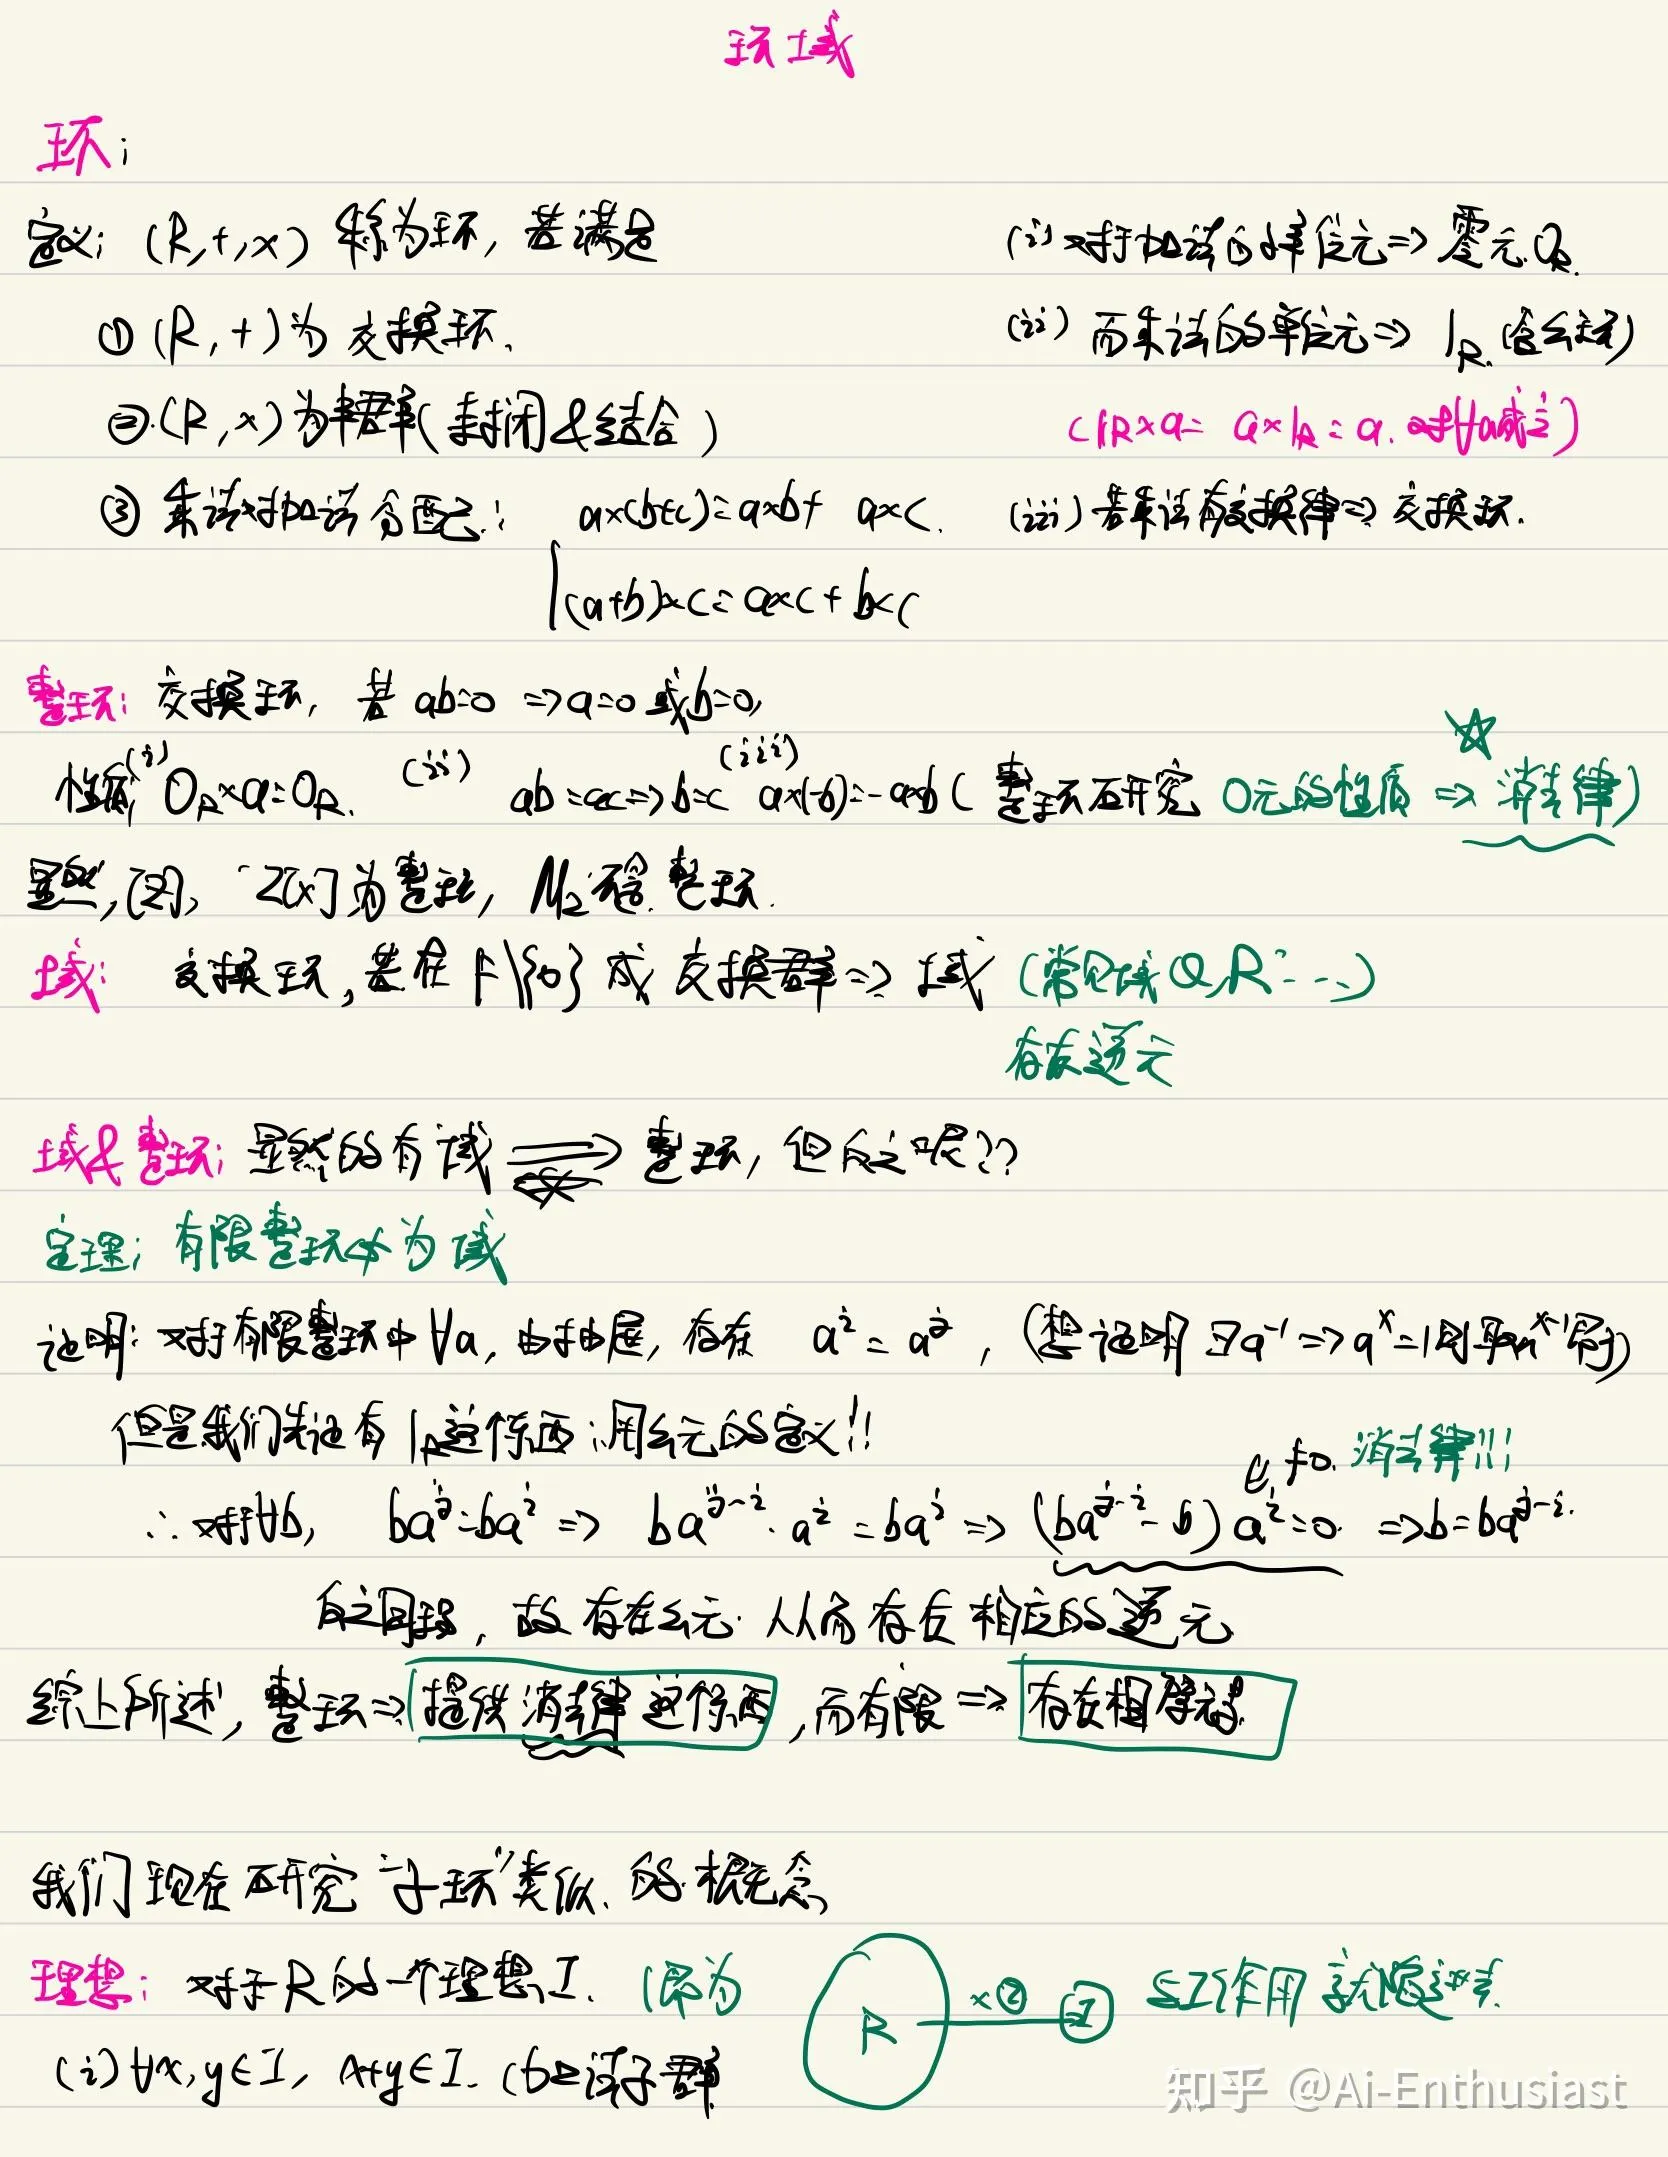 环域
环:
定义: (R,+,×) 称为环, 若满足
① (R,+)为 交换环.
②.(R,×)为半群(封闭&结合)
③ 乘法对加法分配: a×(b+c)=a×b+ a×c.
(a+b)×c=a×c+b×c
(i)对于加法的单位元⇒ 零元 0R.
(ii) 而乘法的单位元⇒ 1R. (含幺环)
(1R×a= a×1R=a. 对∀a成立)
(iii)若乘法有交换律⇒ 交换环.
整环: 交换环, 若 ab=0 ⇒a=0 或b=0,
性质: (i) 0R×a=0R. (ii) ab=ac⇒b=c (iii) a×(-b)=-a×b ( 整环研究 0元的性质 ⇒ 消去律)
显然, [Z], Z[x]为整环, M2不含 整环.
域: 交换环,若在F\{0} 成 交换群⇒ 域 (常见域Q,R……)
存在逆元
域&整环: 显然的有 域 ⇒ 整环, 但反之呢??
定理: 有限整环必为域
证明: 对于有限整环中∀a, 由抽屉, 存在 a^i = a^j, (想证明 ∃a^-1⇒a^x=1则取a^x-1即可)
但是我们先证有1R这个东西:用幺元的定义!!
∴对于∀b, ba^j=ba^i ⇒ ba^j-i·a^i=ba^i⇒ (ba^j-i-b)a^i=0. ⇒b=ba^j-i.
也≠0. 消去律!!!
反之同理, 故 存在幺元. 从而存在相应的逆元
综上所述, 整环⇒ 提供消去律这个东西, 而有限⇒ 存在相等元素
我们现在研究"子环"类似的概念
理想: 对于R的一个理想I. (即为
R ×② I
与I作用就跑进去.
(i)∀x,y∈I, x+y∈I. (加法子群
知乎 @Ai-Enthusiast